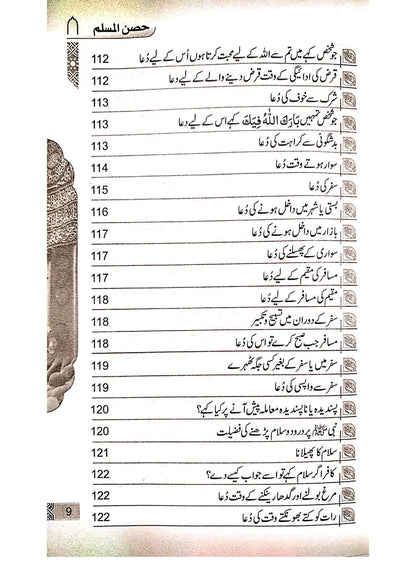 حصن المسلم
جو شخص کہے میں تم سے اللہ کے لیے محبت کرتا ہوں اُس کے لیے دُعا 112
قرض کی ادائیگی کے وقت قرض دینے والے کے لیے دعا 112
شرک سے خوف کی دُعا 113
جو شخص تمہیں بَارَكَ اللهُ فِيكَ کہے اس کے لیے دعا 113
بدشگونی سے کراہت کی دُعا 113
سوار ہوتے وقت دُعا 114
سفر کی دُعا 115
بستی یا شہر میں داخل ہونے کی دُعا 116
بازار میں داخل ہونے کی دُعا 117
سواری کے پھسلنے کی دُعا 117
مسافر کی مقیم کے لیے دُعا 117
مقیم کی مسافر کے لیے دُعا 118
سفر کے دوران میں تسبیح و تکبیر 118
مسافر جب صبح کرے تو اس کی دُعا 118
سفر میں یا سفر کے بغیر کسی جگہ ٹھہرے 119
سفر سے واپسی کی دُعا 119
پسندیدہ یا ناپسندیدہ معاملہ پیش آنے پر کیا کہے؟ 120
نبی ﷺ پر درود و سلام پڑھنے کی فضیلت 120
سلام کا پھیلانا 121
کافر اگر سلام کہے تو اسے جواب کیسے دے؟ 122
مرغ بولنے اور گدھا رینکنے کے وقت دُعا 122
رات کو کتے بھونکتے وقت کی دُعا 122
9